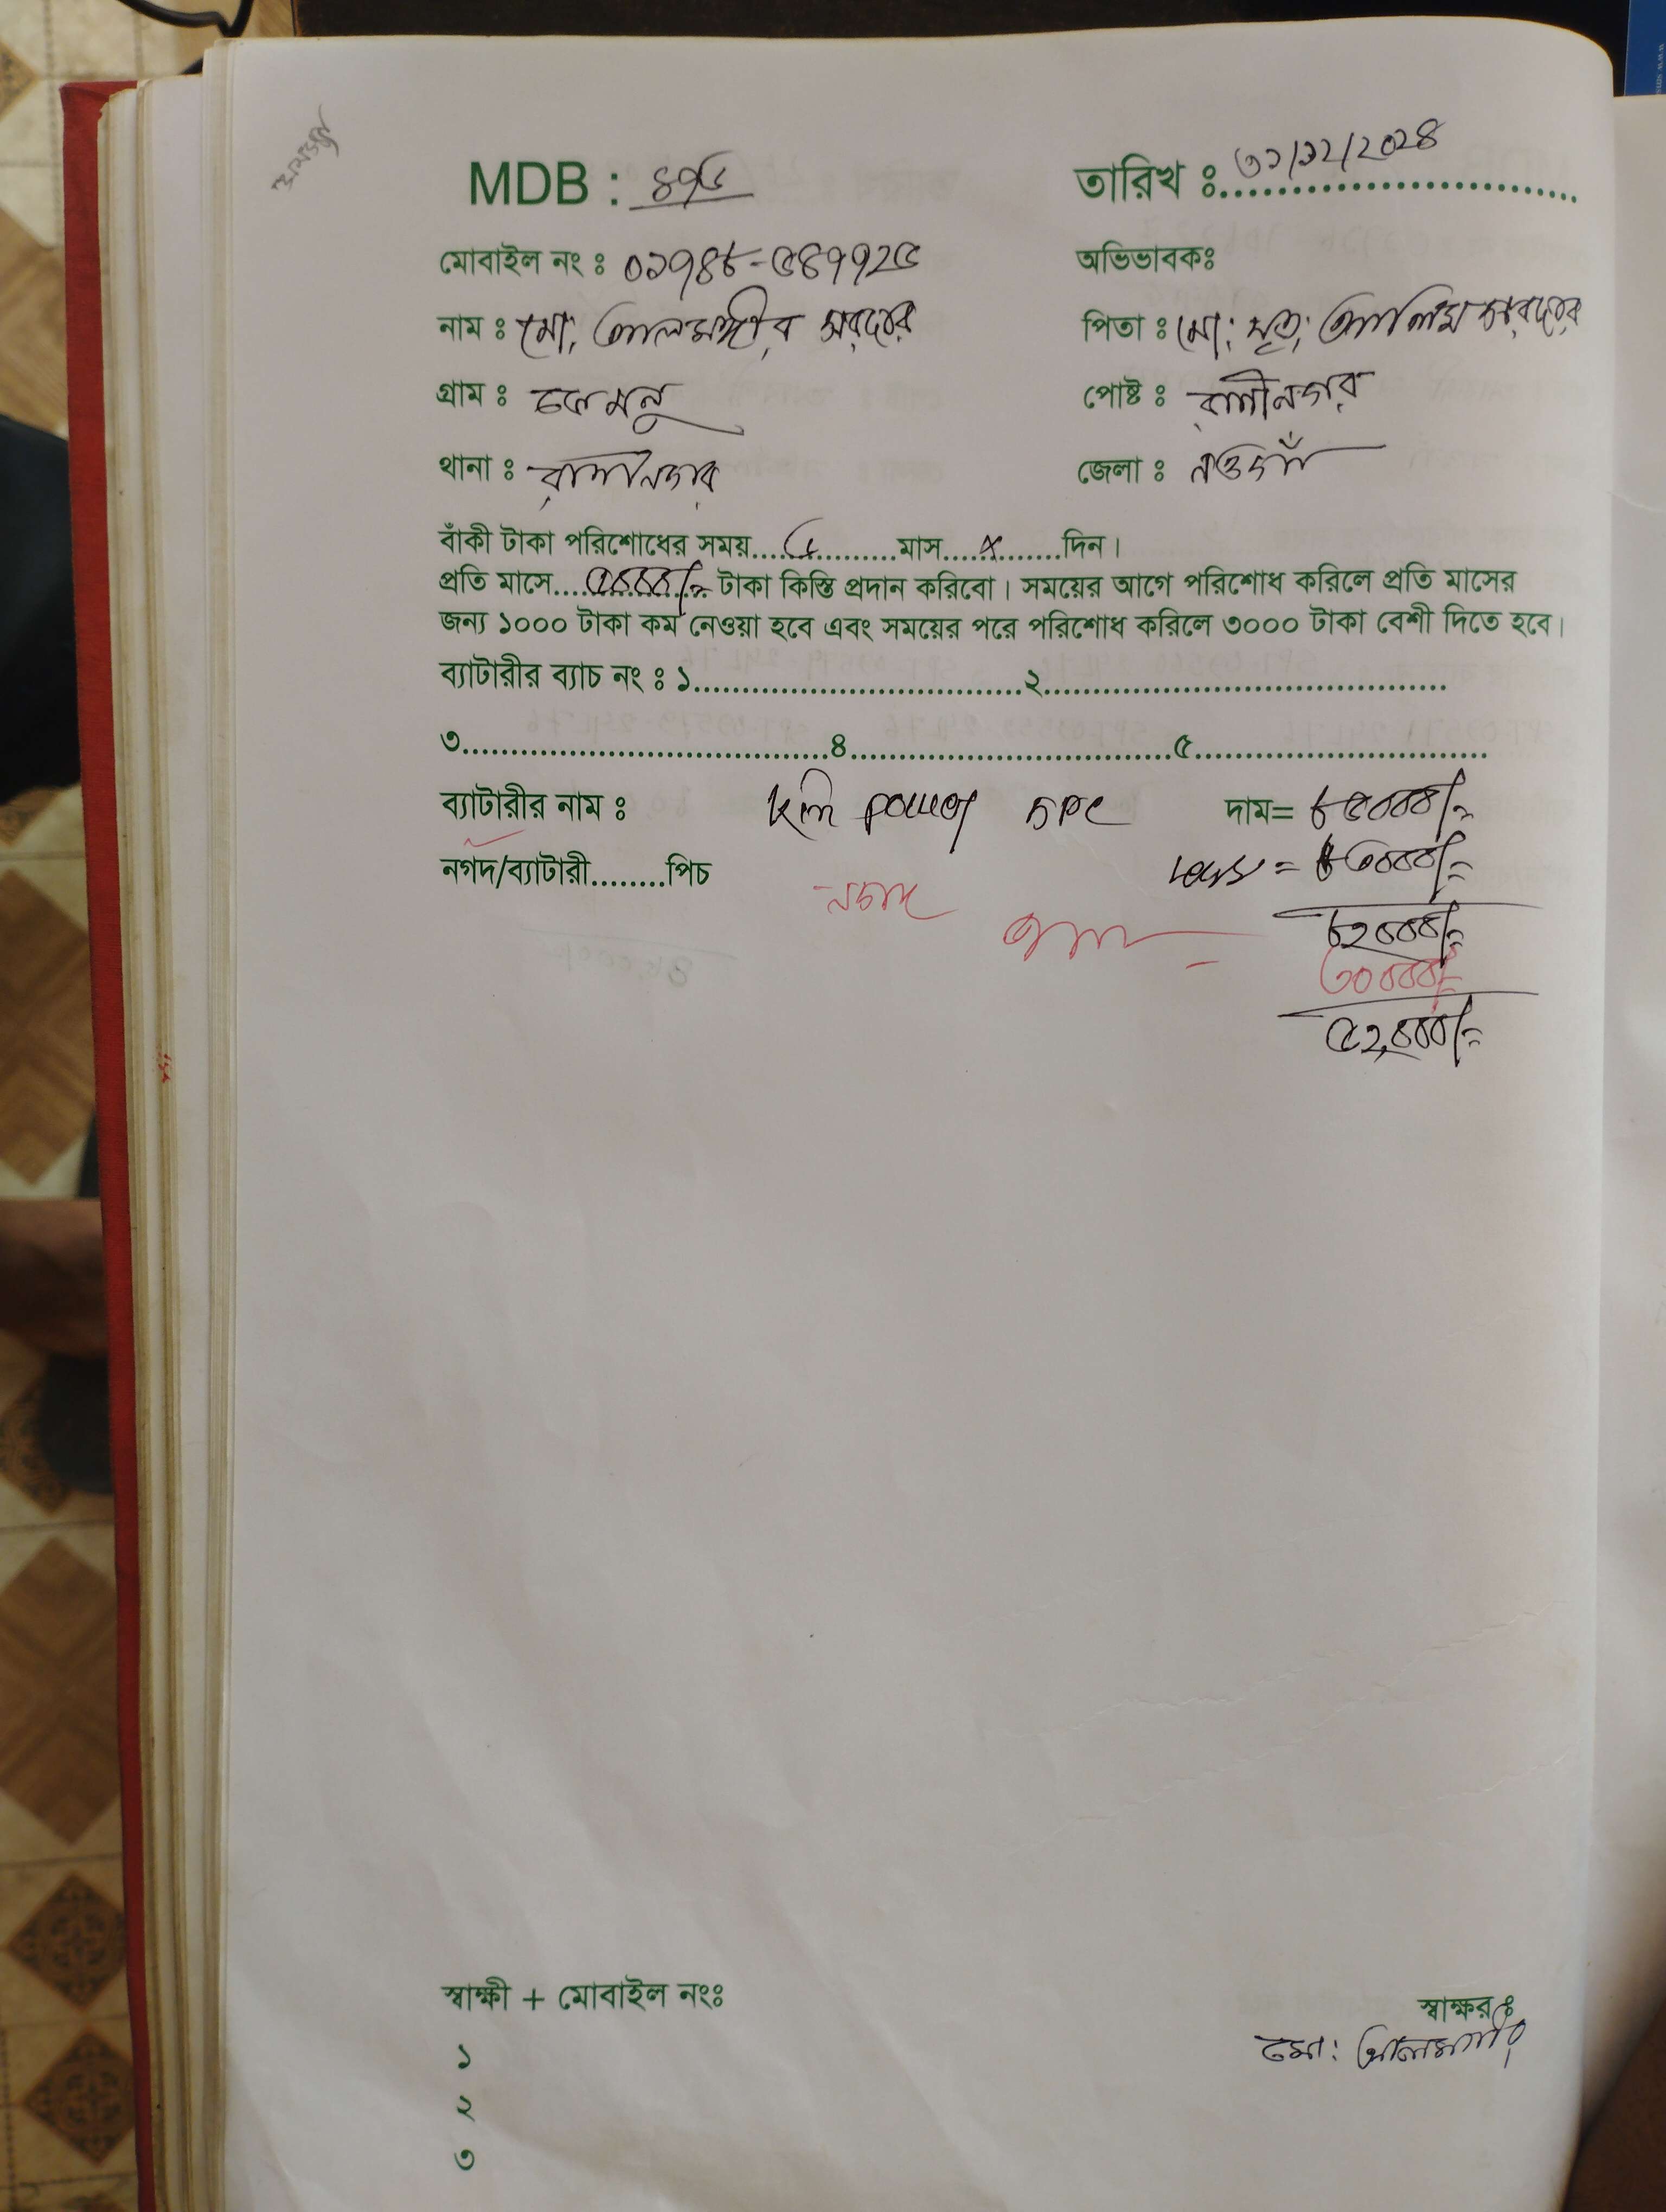 MDB : ৪৭৬
তারিখ ঃ ৩১/১২/২০২৪
মোবাইল নং ঃ ০১৭৪৮-৫৪৭৭২৬
অভিভাবকঃ
নাম ঃ মো; আলমগীর সরদার
পিতা ঃ মো; মৃত; আলিম সরদার
গ্রাম ঃ
পোষ্ট ঃ রাণীনগর
থানা ঃ রাণীনগর
জেলা ঃ নওগাঁ
বাঁকী টাকা পরিশোধের সময়..............মাস....x......দিন।
প্রতি মাসে.... টাকা কিস্তি প্রদান করিবো। সময়ের আগে পরিশোধ করিলে প্রতি মাসের
জন্য ১০০০ টাকা কম নেওয়া হবে এবং সময়ের পরে পরিশোধ করিলে ৩০০০ টাকা বেশী দিতে হবে।
ব্যাটারীর ব্যাচ নং ঃ ১..................................২.........................................
৩......................................৪.................................৫..............................
ব্যাটারীর নাম ঃ power 5pc দাম= ৮৫০০০/=
নগদ/ব্যাটারী........পিচ less = ৩০০০/=
নগদ ৮২০০০/=
৩০০০০/=
৫২,০০০/=
স্বাক্ষী + মোবাইল নংঃ
স্বাক্ষর ঃ
মো: আলমগীর
১
২
৩